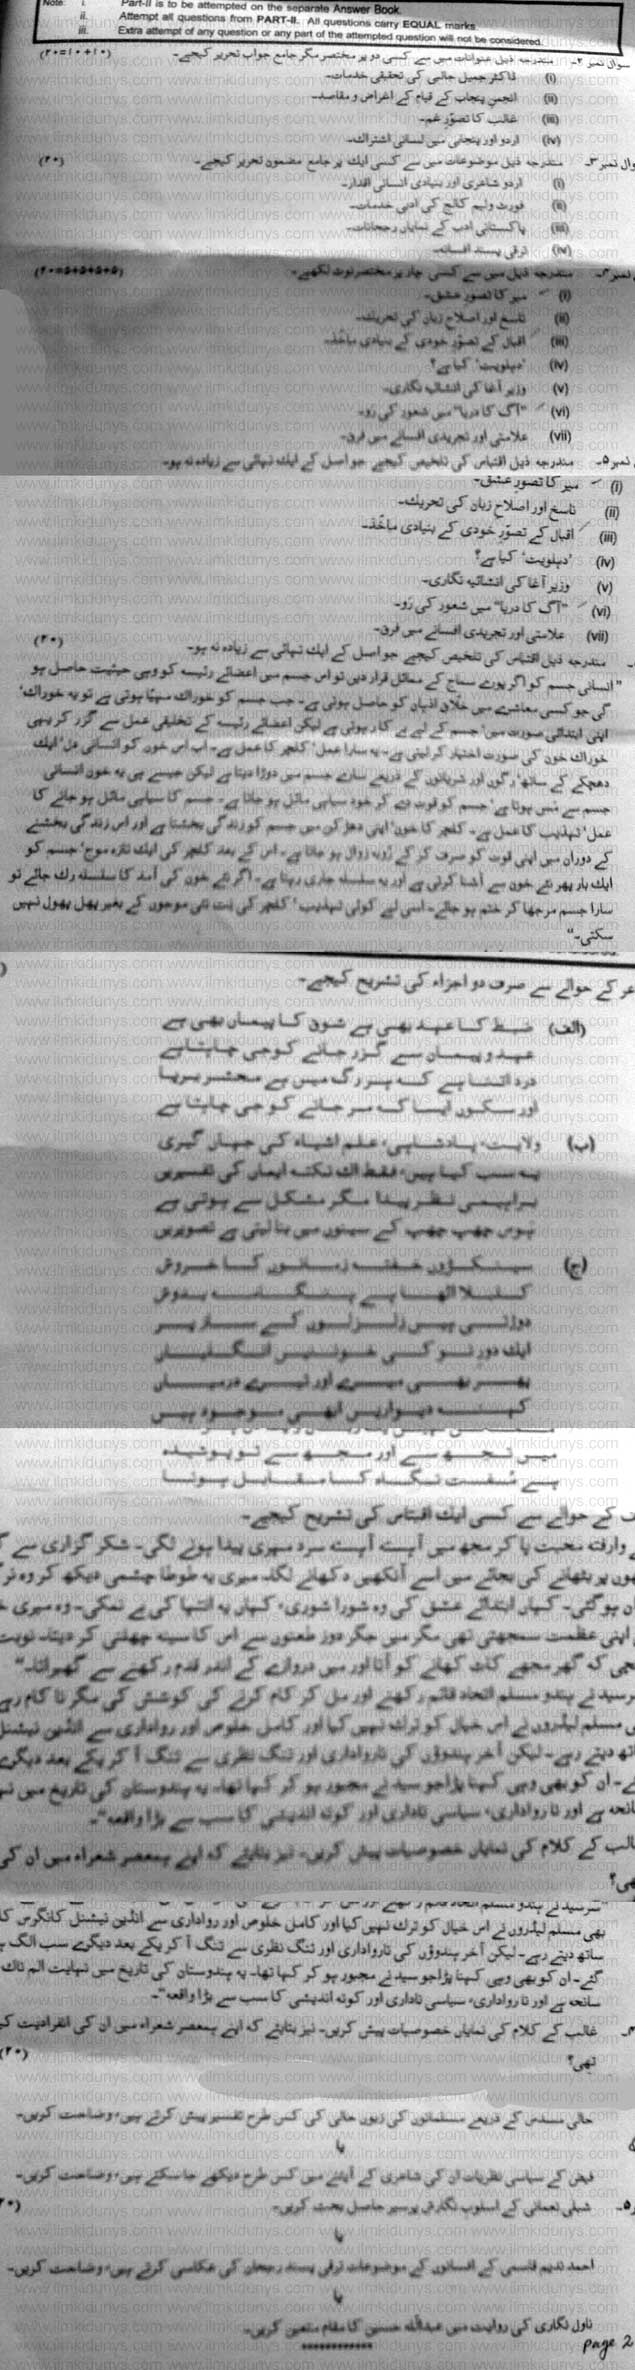 Note: i. Part-II is to be attempted on the separate Answer Book.
ii. Attempt all questions from PART-II. All questions carry EQUAL marks.
iii. Extra attempt of any question or any part of the attempted question will not be considered.
سوال نمبر ۲۔ مندرجہ ذیل عنوانات میں سے کسی دو پر مختصر مگر جامع جواب تحریر کیجیے۔ (۲۰=۱۰+۱۰)
(i) ڈاکٹر جمیل جالبی کی تحقیقی خدمات۔
(ii) انجمن پنجاب کے قیام کے اغراض و مقاصد۔
(iii) غالب کا تصوّرِ غم۔
(iv) اردو اور پنجابی میں لسانی اشتراک۔
وال نمبر ۳۔ مندرجہ ذیل موضوعات میں سے کسی ایک پر جامع مضمون تحریر کیجیے۔ (۲۰)
(i) اردو شاعری اور بنیادی انسانی اقدار۔
(ii) فورٹ ولیم کالج کی ادبی خدمات۔
(iii) پاکستانی ادب کے نمایاں رجحانات۔
(iv) ترقی پسند افسانہ۔
نمبر ۴۔ مندرجہ ذیل میں سے کسی چار پر مختصر نوٹ لکھیے۔ (۲۰=۵+۵+۵+۵)
(i) میر کا تصورِ عشق۔
(ii) ناسخ اور اصلاحِ زبان کی تحریک۔
(iii) اقبال کے تصوّرِ خودی کے بنیادی ماخذ۔
(iv) 'دہلویت' کیا ہے؟
(v) وزیر آغا کی انشائیہ نگاری۔
(vi) "آگ کا دریا" میں شعور کی رَو۔
(vii) علامتی اور تجریدی افسانے میں فرق۔
نمبر ۵۔ مندرجہ ذیل اقتباس کی تلخیص کیجیے جو اصل کے ایک تہائی سے زیادہ نہ ہو۔
(i) میر کا تصورِ عشق۔
(ii) ناسخ اور اصلاحِ زبان کی تحریک۔
(iii) اقبال کے تصوّرِ خودی کے بنیادی ماخذ۔
(iv) 'دہلویت' کیا ہے؟
(v) وزیر آغا کی انشائیہ نگاری۔
(vi) "آگ کا دریا" میں شعور کی رَو۔
(vii) علامتی اور تجریدی افسانے میں فرق۔
مندرجہ ذیل اقتباس کی تلخیص کیجیے جو اصل کے ایک تہائی سے زیادہ نہ ہو۔ (۲۰)
"انسانی جسم کو اگر پورے سماج کے مماثل قرار دیں تو اس جسم میں اعضائے رئیسہ کو وہی حیثیت حاصل ہو
گی جو کسی معاشرے میں خلّاق اذہان کو حاصل ہوتی ہے۔ جب جسم کو خوراک مہیّا ہوتی ہے تو یہ خوراک'
اپنی ابتدائی صورت میں' جسم کے لیے بے کار ہوتی ہے لیکن اعضائے رئیسہ کے تخلیقی عمل سے گزر کر یہی
خوراک خون کی صورت اختیار کر لیتی ہے۔ یہ سارا عمل' کلچر کا عمل ہے۔ اب اس خون کو انسانی دل' ایک
دھچکے کے ساتھ' رگوں اور شریانوں کے ذریعے سارے جسم میں دوڑا دیتا ہے لیکن جیسے ہی یہ خون انسانی
جسم سے مَس ہوتا ہے' جسم کو قوت دے کر خود سیاہی مائل ہو جاتا ہے۔ جسم کا سیاہی مائل ہو جانے کا
عمل' تہذیب کا عمل ہے۔ کلچر کا خون' اپنی دھڑکن میں جسم کو زندگی بخشتا ہے اور اس زندگی بخشنے
کے دوران میں اپنی قوت کو صرف کر کے رُوبہ زوال ہو جاتا ہے۔ اس کے بعد کلچر کی ایک تازہ موج' جسم کو
ایک بار پھر نئے خون سے آشنا کرتی ہے اور یہ سلسلہ جاری رہتا ہے۔ اگر نئے خون کی آمد کا سلسلہ رک جائے تو
سارا جسم مرجھا کر ختم ہو جائے۔ اسی لیے کوئی تہذیب' کلچر کی نت نئی موجوں کے بغیر پھل پھول نہیں
سکتی۔"
عر کے حوالے سے صرف دو اجزاء کی تشریح کیجیے۔
(الف) ضبط کا عہد بھی ہے شوق کا پیمان بھی ہے
عہد و پیماں سے گزر جانے کو جی چاہتا ہے
درد اتنا ہے کہ ہر رگ میں ہے محشر برپا
اور سکوں ایسا کہ مر جانے کو جی چاہتا ہے
(ب) ولایت، پادشاہی، علم اشیاء کی جہاں گیری
یہ سب کیا ہیں، فقط اک نکتہ ایماں کی تفسیریں
براہیمی نظر پیدا مگر مشکل سے ہوتی ہے
ہوس چھپ چھپ کے سینوں میں بنا لیتی ہے تصویریں
(ج) سینکڑوں خفتہ زمانوں کا خروش
دوڑتی ہیں زلزلوں کے ساز پر
پھر بھی میرے اور تیرے درمیاں
کہنہ دیواریں ابھی موجود ہیں
میں تجھ سے اور مجھ سے تو پوشیدہ
ہے مُفت نگاہ کا مقابل ہونا
ف کے حوالے سے کسی ایک اقتباس کی تشریح کیجیے۔
وارفتہ محبت پا کر مجھ میں آہستہ آہستہ سرد مہری پیدا ہونے لگی۔ شکر گزاری سے
ھوں پر بٹھانے کی بجائے میں اسے آنکھیں دکھانے لگا۔ میری یہ طوطا چشمی دیکھ کر وہ
ان ہو گئی۔ کہاں ابتدائے عشق کی وہ شورا شوری، کہاں یہ انتہا کی بے نمکی۔ وہ میری
اپنی عظمت سمجھتی تھی مگر میں جگر دوز طعنوں سے اس کا سینہ چھلنی کر دیتا۔ نوبت
چی کہ گھر مجھے کاٹ کھانے کو آتا اور میں دروازے کے اندر قدم رکھنے سے گھبراتا۔"
سرسید نے ہندو مسلم اتحاد قائم رکھنے اور مل کر کام کرنے کی کوشش کی مگر نا کام رہے
ی مسلم لیڈروں نے اس خیال کو ترک نہیں کیا اور کامل خلوص اور رواداری سے انڈین نیشنل
اتھ دیتے رہے۔ لیکن آخر ہندوؤں کی نارواداری اور تنگ نظری سے تنگ آ کر یکے بعد دیگرے
ے۔ ان کو بھی وہی کہنا پڑا جو سید نے مجبور ہو کر کہا تھا۔ یہ ہندوستان کی تاریخ میں
سانحہ ہے اور نا رواداری، سیاسی ناداری اور کوتہ اندیشی کا سب سے بڑا واقعہ"۔
الب کے کلام کی نمایاں خصوصیات پیش کریں۔ نیز بتایئے کہ اپنے ہمعصر شعراء میں ان کی
ھی؟
بھی مسلم لیڈروں نے اس خیال کو ترک نہیں کیا اور کامل خلوص اور رواداری سے انڈین نیشنل کانگرس کا
ساتھ دیتے رہے۔ لیکن آخر ہندوؤں کی نارواداری اور تنگ نظری سے تنگ آ کر یکے بعد دیگرے سب الگ
گئے۔ ان کو بھی وہی کہنا پڑا جو سید نے مجبور ہو کر کہا تھا۔ یہ ہندوستان کی تاریخ میں نہایت الم ناک
سانحہ ہے اور نا رواداری، سیاسی ناداری اور کوتہ اندیشی کا سب سے بڑا واقعہ"۔
غالب کے کلام کی نمایاں خصوصیات پیش کریں۔ نیز بتایئے کہ اپنے ہمعصر شعراء میں ان کی انفرادیت
تھی؟ (۲۰)
حالی مسدس کے ذریعے مسلمانوں کی زبوں حالی کی کس طرح تفسیر پیش کرتے ہیں، وضاحت کریں۔
یا
فیض کے سیاسی نظریات ان کی شاعری کے آئینے میں کس طرح دیکھے جا سکتے ہیں، وضاحت کریں۔
۵۔ شبلی نعمانی کے اسلوب نگارش پر سیر حاصل بحث کریں۔
یا
احمد ندیم قاسمی کے افسانوں کے موضوعات ترقی پسند رجحان کی عکاسی کرتے ہیں، وضاحت کریں۔
یا
ناول نگاری کی روایت میں عبداللہ حسین کا مقام متعین کریں۔
************
page 2